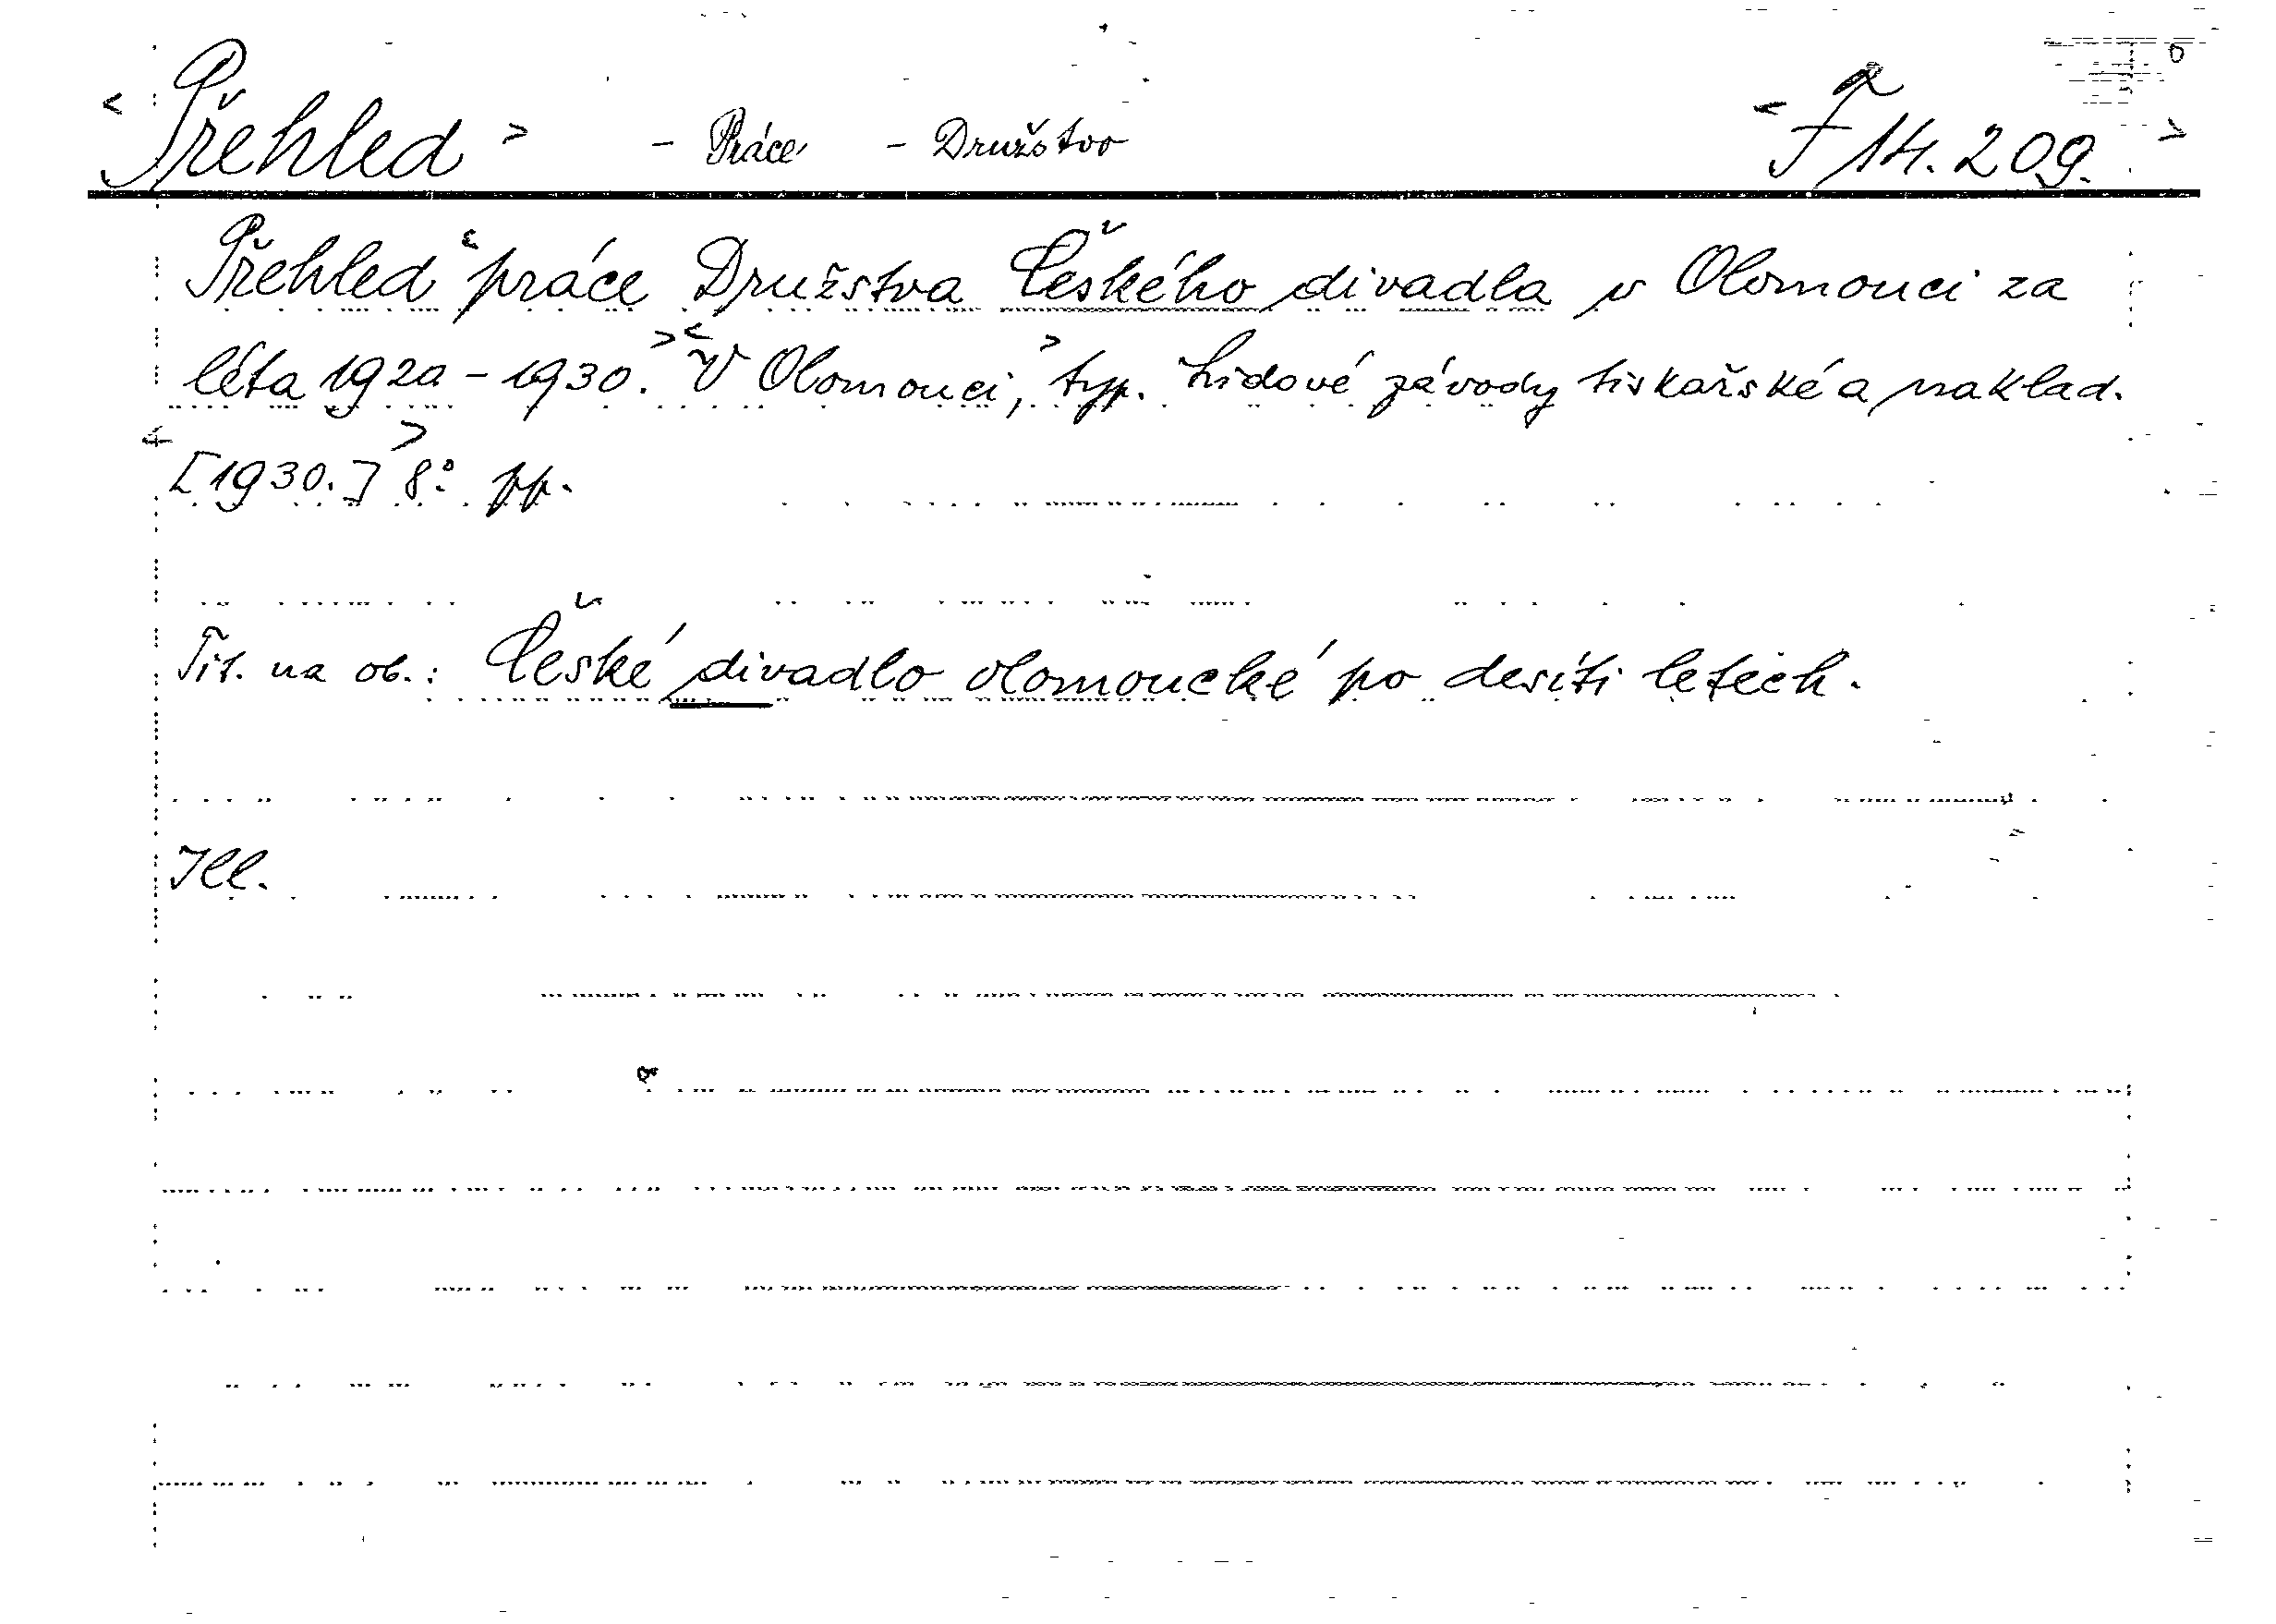 <Přehled> - Práce - Družstvo <F 14.209.>
Přehled <práce Družstva Českého divadla v Olomouci za
léta 1920-1930.> <V Olomouci,> typ. Lidové závody tiskařské a naklad.
<[1930.]> 8° pp.
Tit. na ob.: České divadlo olomoucké po desíti letech.
Ill.